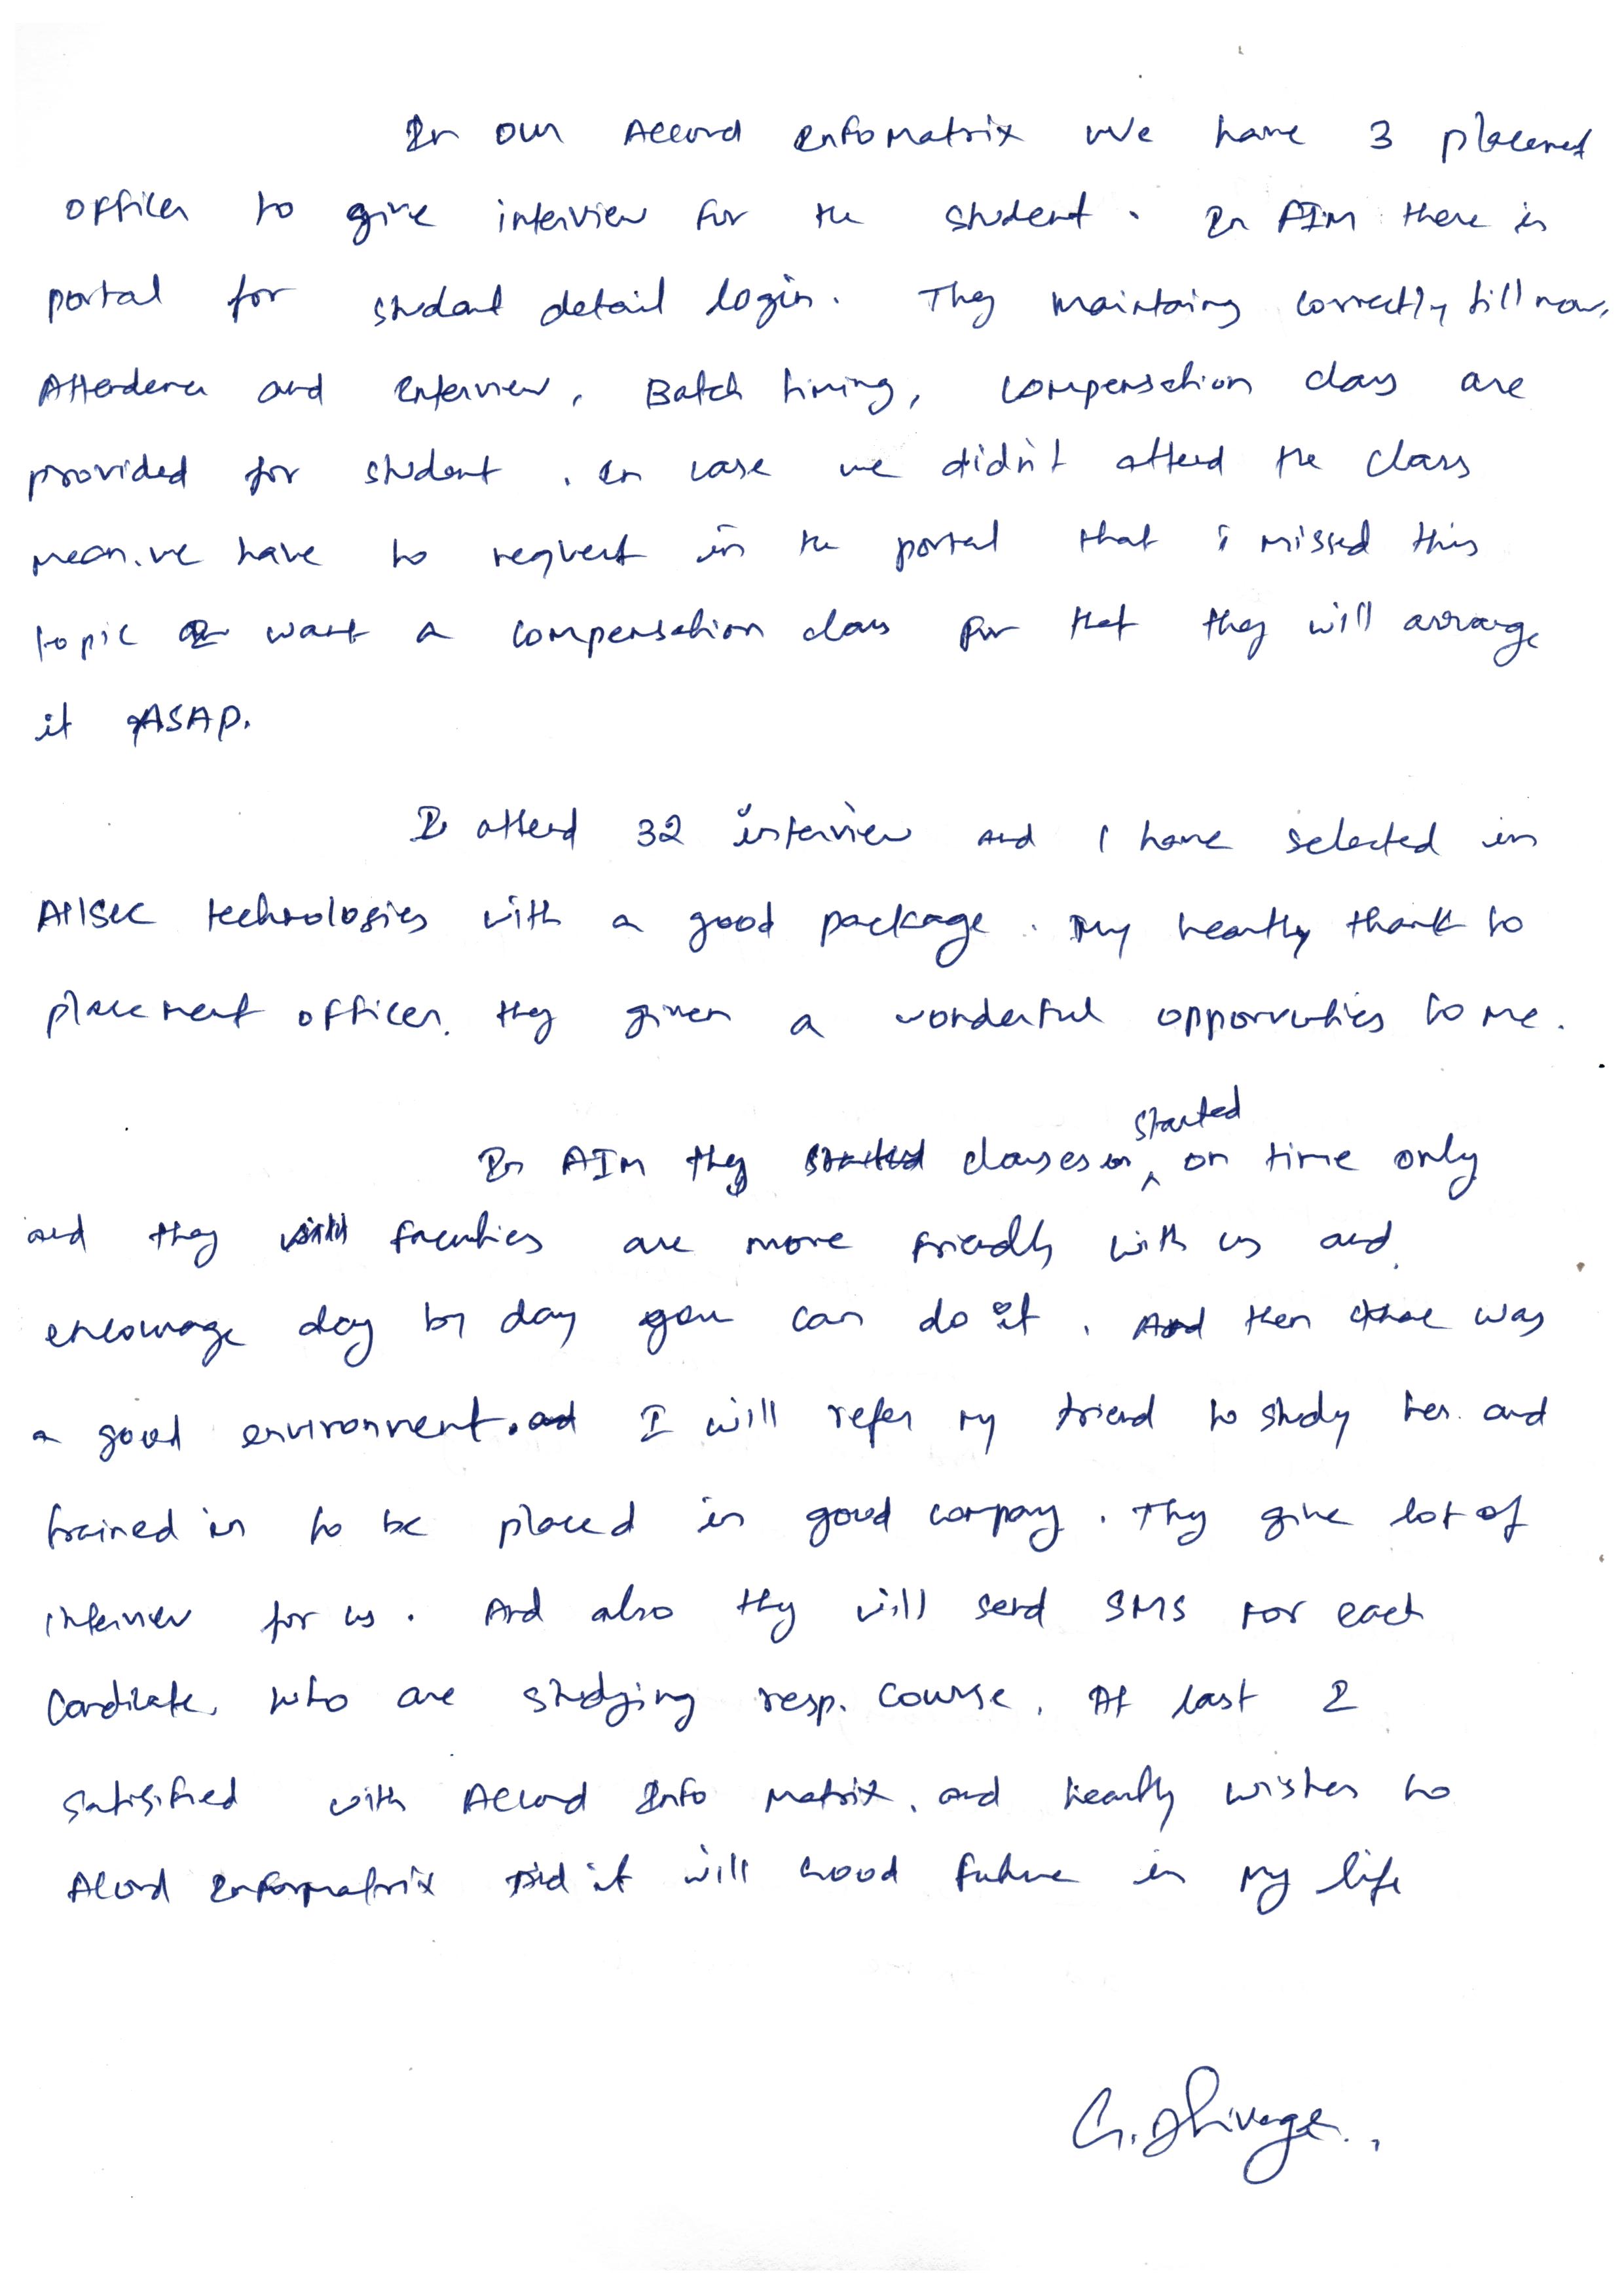 In our Accord InfoMatrix We have 3 placement
officer to give interview for the student. In AIM there is
portal for student detail login. They Maintaing correctly till now,
Attendence and Interview, Batch timing, compensation class are
provided for student. In case we didn't attend the class
mean. we have to request in the portal that i missed this
topic I want a compensation class for that they will arrange
it ASAP.
I attend 32 interview and I have selected in
Allsec technologies with a good package. My heartly thank to
placement officer. they given a wonderful opporutnities to me.
started
In AIM they classes on time only
and they faculties are more friendly with us and
encourage day by day you can do it. And then there was
a good environment. I will refer my friend to study her. and
trained in to be placed in good compay. They give lot of
interview for us. And also they will send SMS for each
Candidate, who are studying resp. course. At last I
satisified with Accord Info Matrix. and heartly wishes to
Acord Informatrix it will Good future in my life